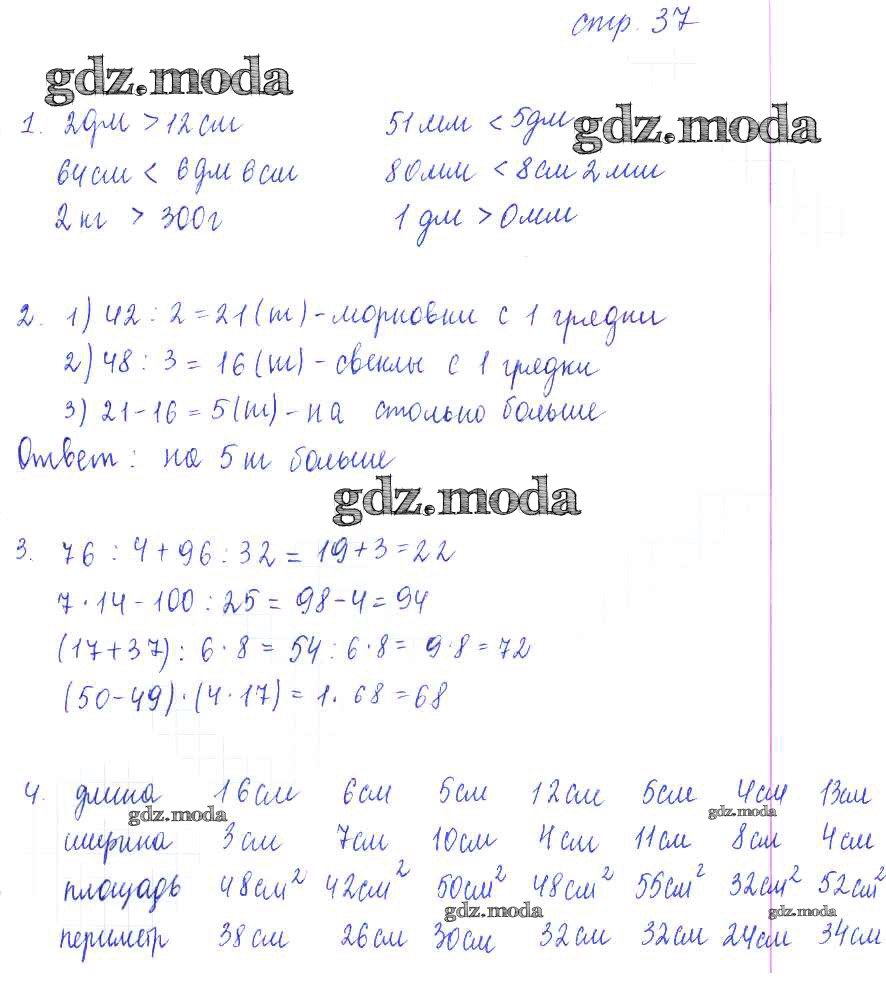 стр. 37
gdz.moda
1. 2дм > 12см 51мм < 5дм
gdz.moda
64см < 6дм 6см 80мм < 8см 2мм
2кг > 300г 1дм > 0мм
2. 1) 42 : 2 = 21(т) - моркови с 1 грядки
2) 48 : 3 = 16(т) - свеклы с 1 грядки
3) 21 - 16 = 5(т) - на столько больше
Ответ: на 5т больше
gdz.moda
3. 76 : 4 + 96 : 32 = 19 + 3 = 22
7 · 14 - 100 : 25 = 98 - 4 = 94
(17 + 37) : 6 · 8 = 54 : 6 · 8 = 9 · 8 = 72
(50 - 49) · (4 · 17) = 1 · 68 = 68
4. длина 16см 6см 5см 12см 5см 4см 13см
gdz.moda gdz.moda
ширина 3см 7см 10см 4см 11см 8см 4см
площадь 48см² 42см² 50см² 48см² 55см² 32см² 52см²
gdz.moda gdz.moda
периметр 38см 26см 30см 32см 32см 24см 34см